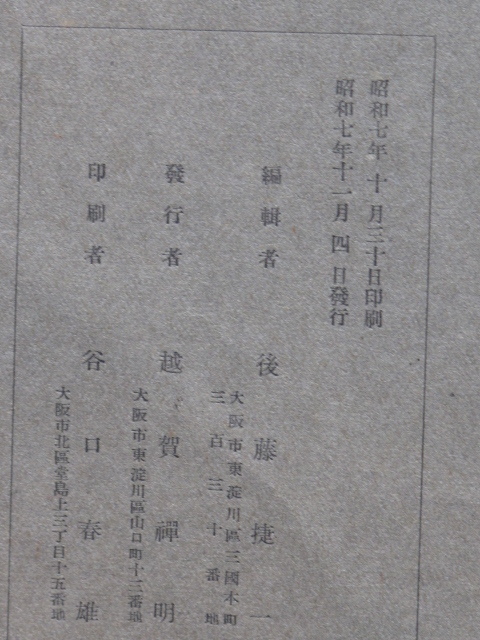 昭和七年十月三十日印刷
昭和七年十一月四日發行
編輯者 後藤捷一
大阪市東淀川區三國本町
三百三十番地
發行者 越賀禪明
大阪市東淀川區山口町十二番地
印刷者 谷口春雄
大阪市北區堂島上三丁目十五番地